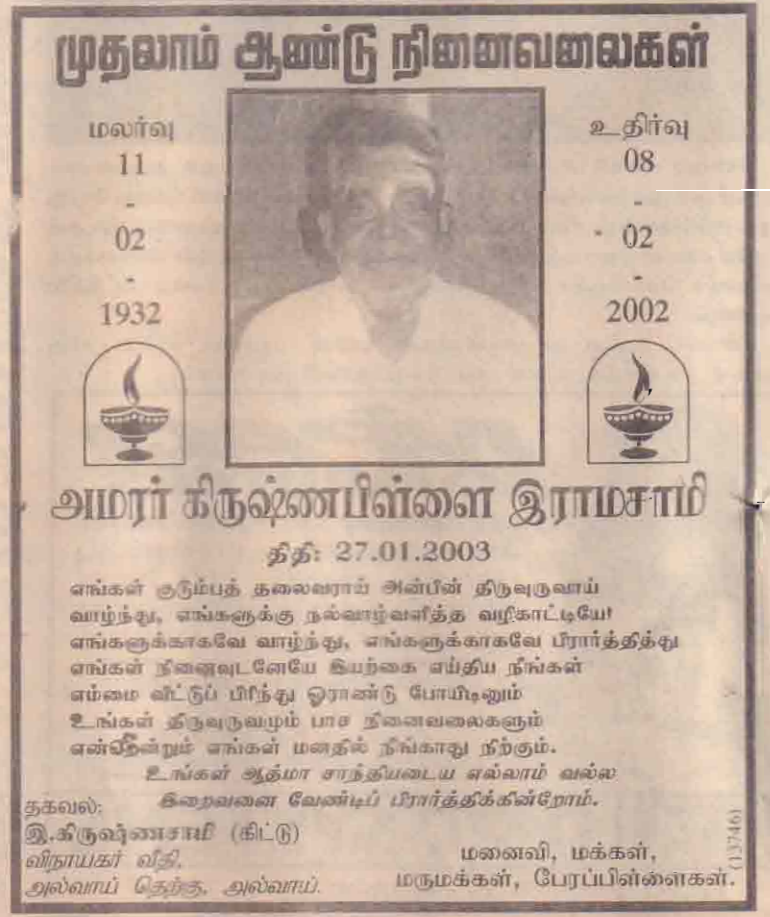 முதலாம் ஆண்டு நினைவலைகள்
மலர்வு
11
-
02
-
1932
உதிர்வு
08
-
02
-
2002
அமரர் கிருஷ்ணபிள்ளை இராமசாமி
திதி: 27.01.2003
எங்கள் குடும்பத் தலைவராய் அன்பின் திருவுருவாய்
வாழ்ந்து, எங்களுக்கு நல்வாழ்வளித்த வழிகாட்டியே!
எங்களுக்காகவே வாழ்ந்து, எங்களுக்காகவே பிரார்த்தித்து
எங்கள் நினைவுடனேயே இயற்கை எய்திய நீங்கள்
எம்மை விட்டுப் பிரிந்து ஓராண்டு போயிடினும்
உங்கள் திருவுருவமும் பாச நினைவலைகளும்
என்றென்றும் எங்கள் மனதில் நீங்காது நிற்கும்.
உங்கள் ஆத்மா சாந்தியடைய எல்லாம் வல்ல
இறைவனை வேண்டிப் பிரார்த்திக்கின்றோம்.
தகவல்:
இ.கிருஷ்ணசாமி (கிட்டு)
விநாயகர் வீதி,
அல்வாய் தெற்கு, அல்வாய்.
மனைவி, மக்கள்,
மருமக்கள், பேரப்பிள்ளைகள்.
(13746)